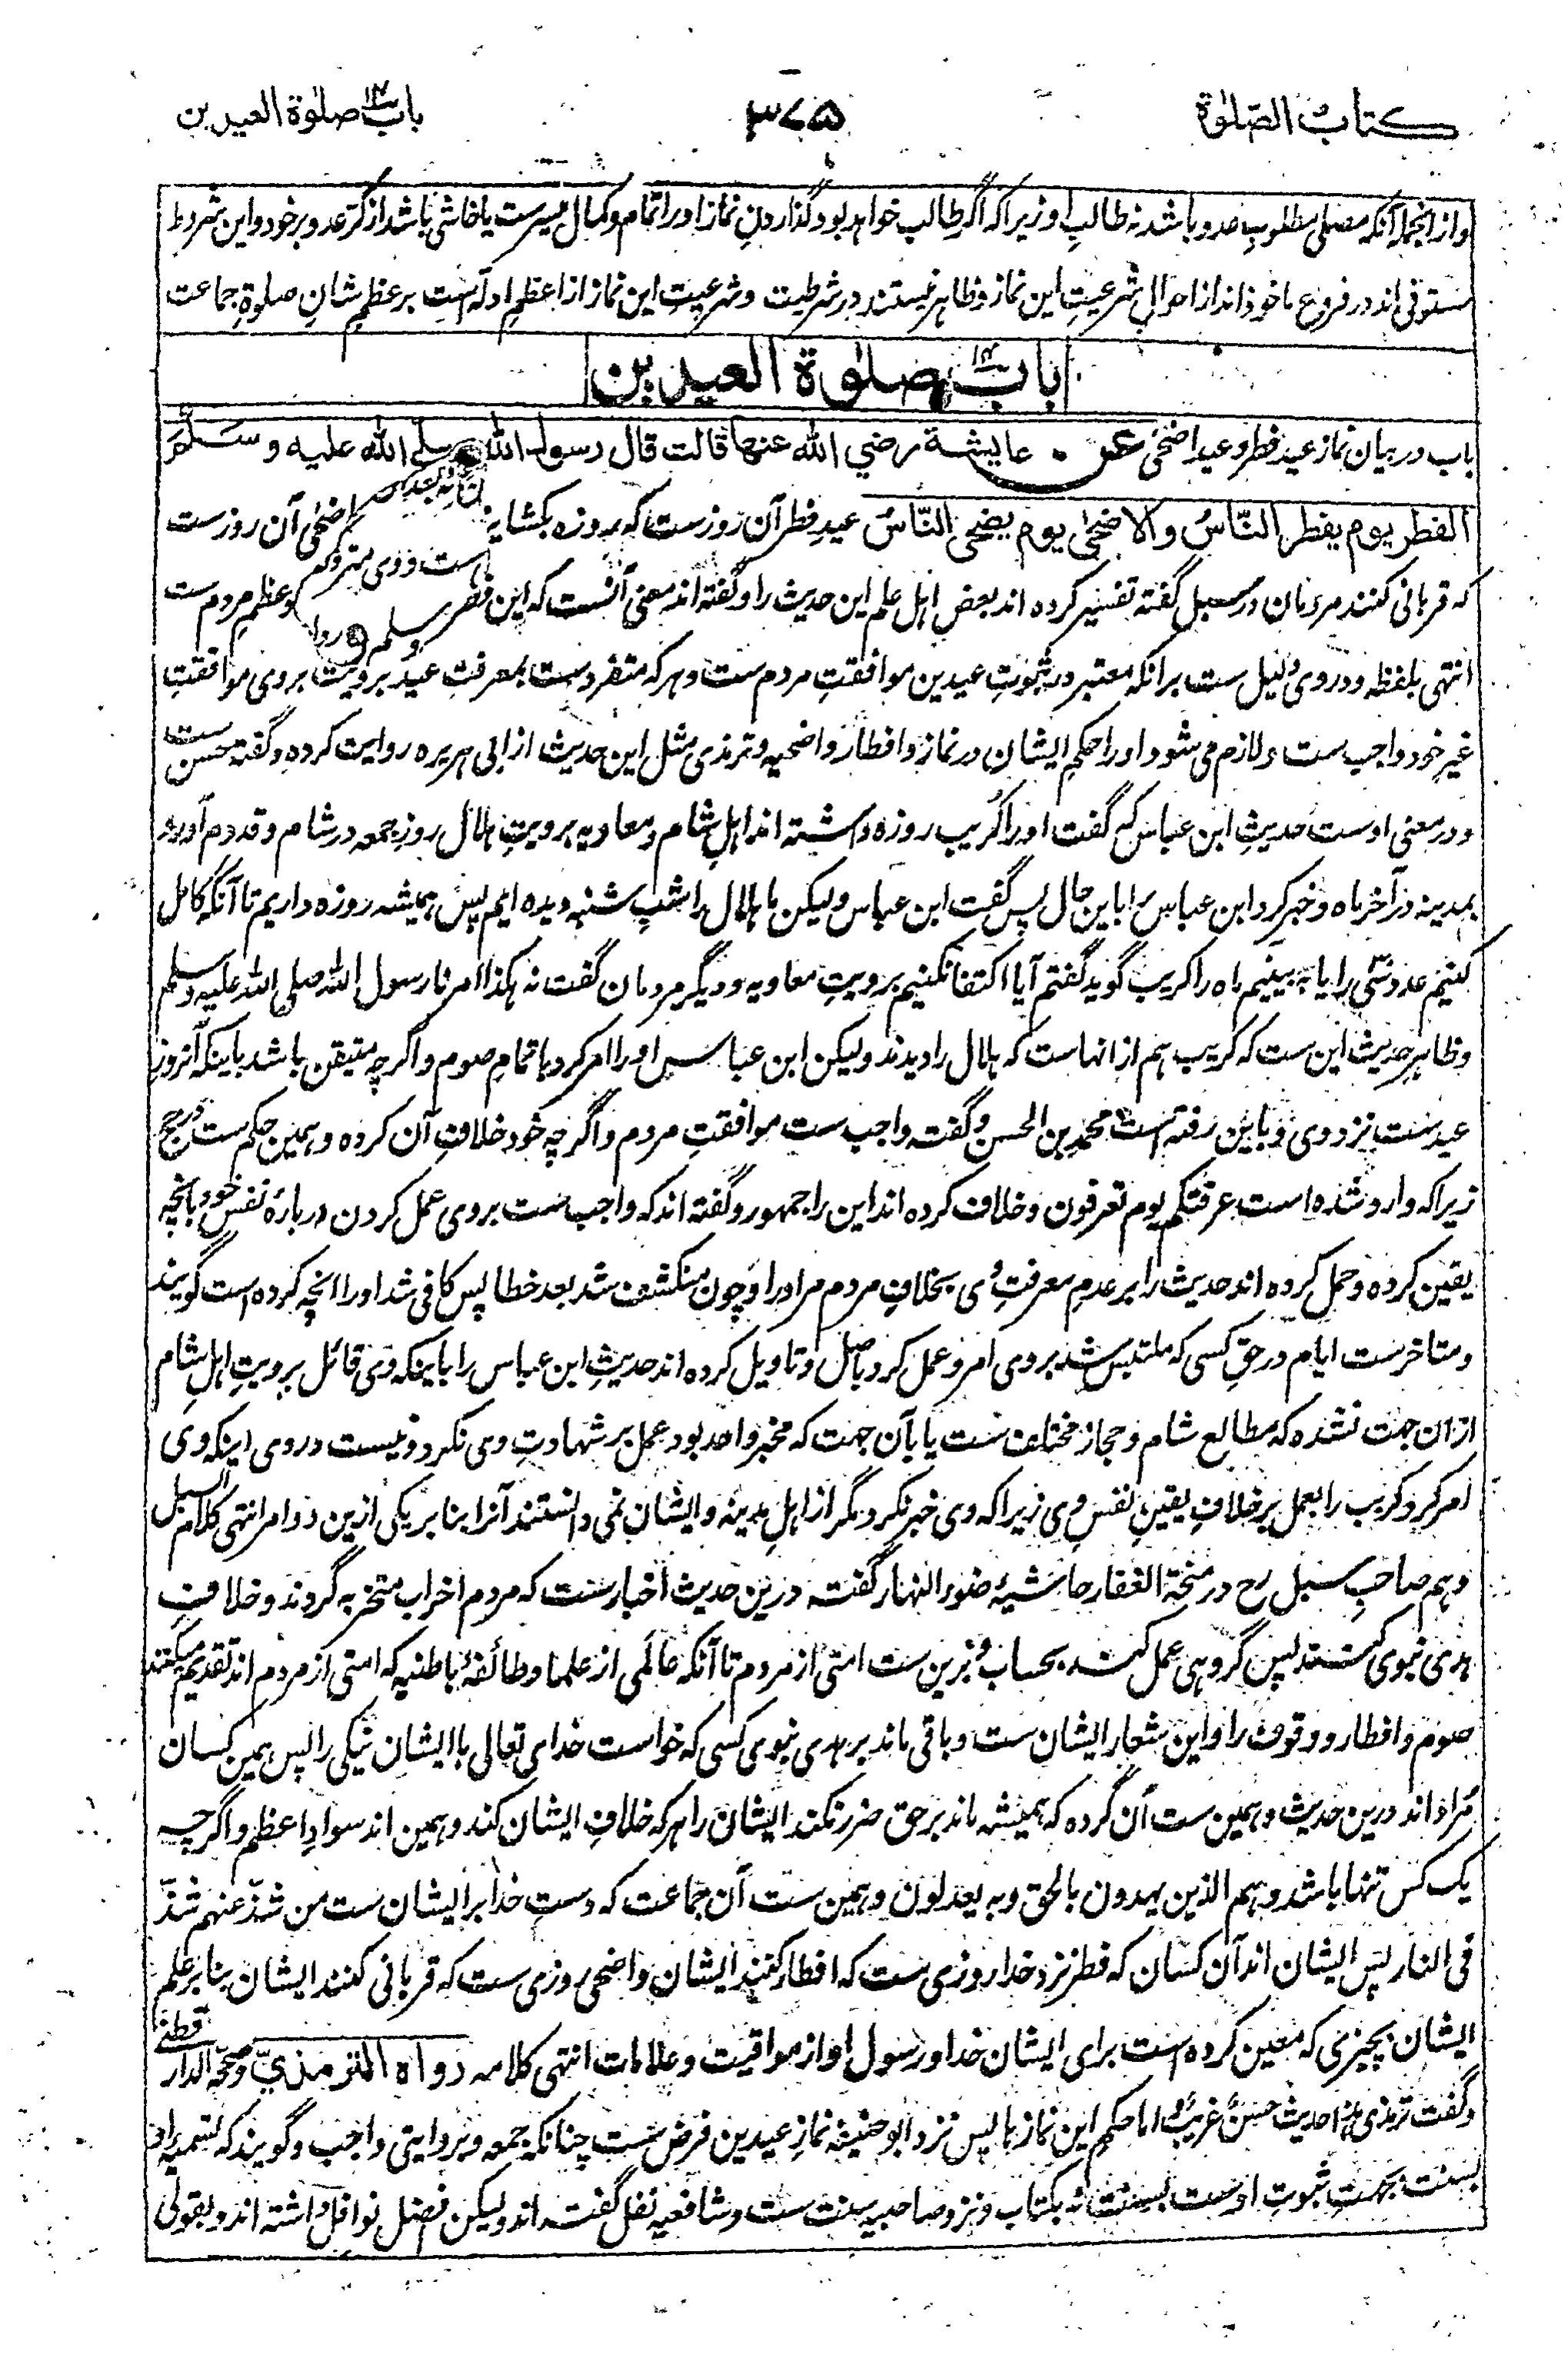 کتاب الصّلوٰة
۳۷۵
باب صلوٰة العیدین
وازانجمله آنکه مصلی مطلوبِ عدو باشد نه طالبِ او زیراکه اگر طالب خواهد بود گذاردنِ نماز او را اتمام و کمال میسرست یا خاشی باشد از کرّ عدو بر خود و این شروط
مستوفی اند در فروع ماخوذ اند از احوالِ شرعیتِ این نماز و ظاهر نیستند در شرطیت و شرعیتِ این نماز از اعظمِ ادله است بر عظمِ شانِ صلوةِ جماعت
باب صلوٰة العیدین
باب در بیان نماز عید فطر و عید اضحیٰ عن عایشة رضي الله عنها قالت قال رسول الله صلے الله علیه و سلم
الفطر یوم یفطر النّاسُ والاضحیٰ یوم یضحی النّاسُ عیدِ فطر آن روزست که روزه بکشایند اضحیٰ آن روزست
که قربانی کنند مردمان در سبل گفته تفسیر کرده اند بعض اهلِ علم این حدیث را و گفته اند معنی آنست که این فطر و عظمِ مردم ست
انتهی بلفظه و در وی دلیل ست برانکه معتبر در ثبوتِ عیدین موافقتِ مردم ست و هر که متفردست بمعرفتِ عید برویت بر وی موافقتِ
غیر خود واجب ست و لازم می شود او را حکمِ ایشان در نماز و افطار و اضحیه و ترمذی مثل این حدیث از ابی هریره روایت کرده و گفته حسن ست
و در معنی اوست حدیثِ ابن عباس که گفت او را کریب روزه داشته اند اهلِ شام و معاویه برویتِ هلال روز جمعه در شام و قدوم آورد
بمدینه در آخر ماه و خبر کرد ابن عباس را باین حال پس گفت ابن عباس ولیکن ما هلال را شب شنبه دیده ایم پس همیشه روزه داریم تا آنکه کامل
کنیم عدد سّی را یا به بینیم ماه را کریب گوید گفتم آیا اکتفا نکنیم برویتِ معاویه و دیگر مردمان گفت نه هکذا امرنا رسول الله صلی الله علیه وسلم
و ظاهرِ حدیث این ست که کریب هم از انهاست که هلال را دیدند ولیکن ابن عباس او را امر کرد باتمامِ صوم و اگرچه متیقن باشد باینکه آنروز
عیدست نزد وی و باین رفته است محمد بن الحسن و گفته واجب ست موافقتِ مردم و اگرچه خود خلافِ آن کرده و همین حکم ست در حج
زیراکه وارد شده است عرفتکم یوم تعرفون و خلاف کرده اند این را جمهور و گفته اند که واجب ست بر وی عمل کردن درباره نفس خود بانچه
یقین کرده و حمل کرده اند حدیث را بر عدمِ معرفتِ وی بخلافِ مردم مراد را و چون منکشف شد بعد خطا پس کافی شد او را انچه کرده است گویند
و متاخرست ایام در حقِ کسی که ملتبس شد بر وی امر و عمل کرد باصل و تاویل کرده اند حدیثِ ابن عباس را باینکه وی قائل برویتِ اهلِ شام
ازان جهت نشده که مطالع شام و حجاز مختلف ست یا بآن جهت که مخبر واحد بود عمل بر شهادتِ وی نکرد و نیست در وی اینکه وی
امر کرد کریب را بعمل بر خلافِ یقینِ نفسِ وی زیراکه وی خبر نکرد مگر از اهلِ مدینه و ایشان نمی دانستند آنرا بنا بر یکی ازین دو امر انتهی کلام السبل
و هم صاحبِ سبل رح در منحة الغفار حاشیۂ ضوء النهار گفته درین حدیث اخبارست که مردم احزاب متحزبه گردند و خلافتِ
هدی نبوی کنند پس گروهی عمل کنند بحساب و برین ست امتی از مردم تا آنکه عالَمی از علما و طائفۂ باطنیه که امتی از مردم اند تقدیم میکنند
صوم و افطار و وقوف را و این شعار ایشان ست و باقی ماند بر هدی نبوی کسی که خواست خدای تعالی باایشان نیکی را پس همین کسان
مراد اند درین حدیث و همین ست آن گروه که همیشه ماند بر حق ضرر نکند ایشان را هر که خلافِ ایشان کند و همین اند سوادِ اعظم و اگرچه
یک کس تنها باشد و هم الذین یهدون بالحق و به یعدلون و همین ست آن جماعت که دستِ خدا بر ایشان ست من شذّ عنهم شذّ
فی النار پس ایشان اند آن کسان که فطر نزد خدا روزی ست که افطار کنند ایشان و اضحی روزی ست که قربانی کنند ایشان بنا بر علم
ایشان بچیزی که معین کرده است برای ایشان خدا و رسولِ او از مواقیت و علامات انتهی کلامه رواه الترمذيّ و صححه الدارقطنے
و گفت ترمذی هذا حدیث حسنٌ غریبٌ اما حکم این نمازها پس نزد ابوحنیفه نمازِ عیدین فرض ست چنانکه جمعه و بروایتی واجب و گویند که تسمیه او
بسنت بجهتِ ثبوتِ اوست بسنت نه بکتاب و نزد صاحبیه سنت ست و شافعیه نفل گفته اند ولیکن افضل نوافل داشته اند و بقولی